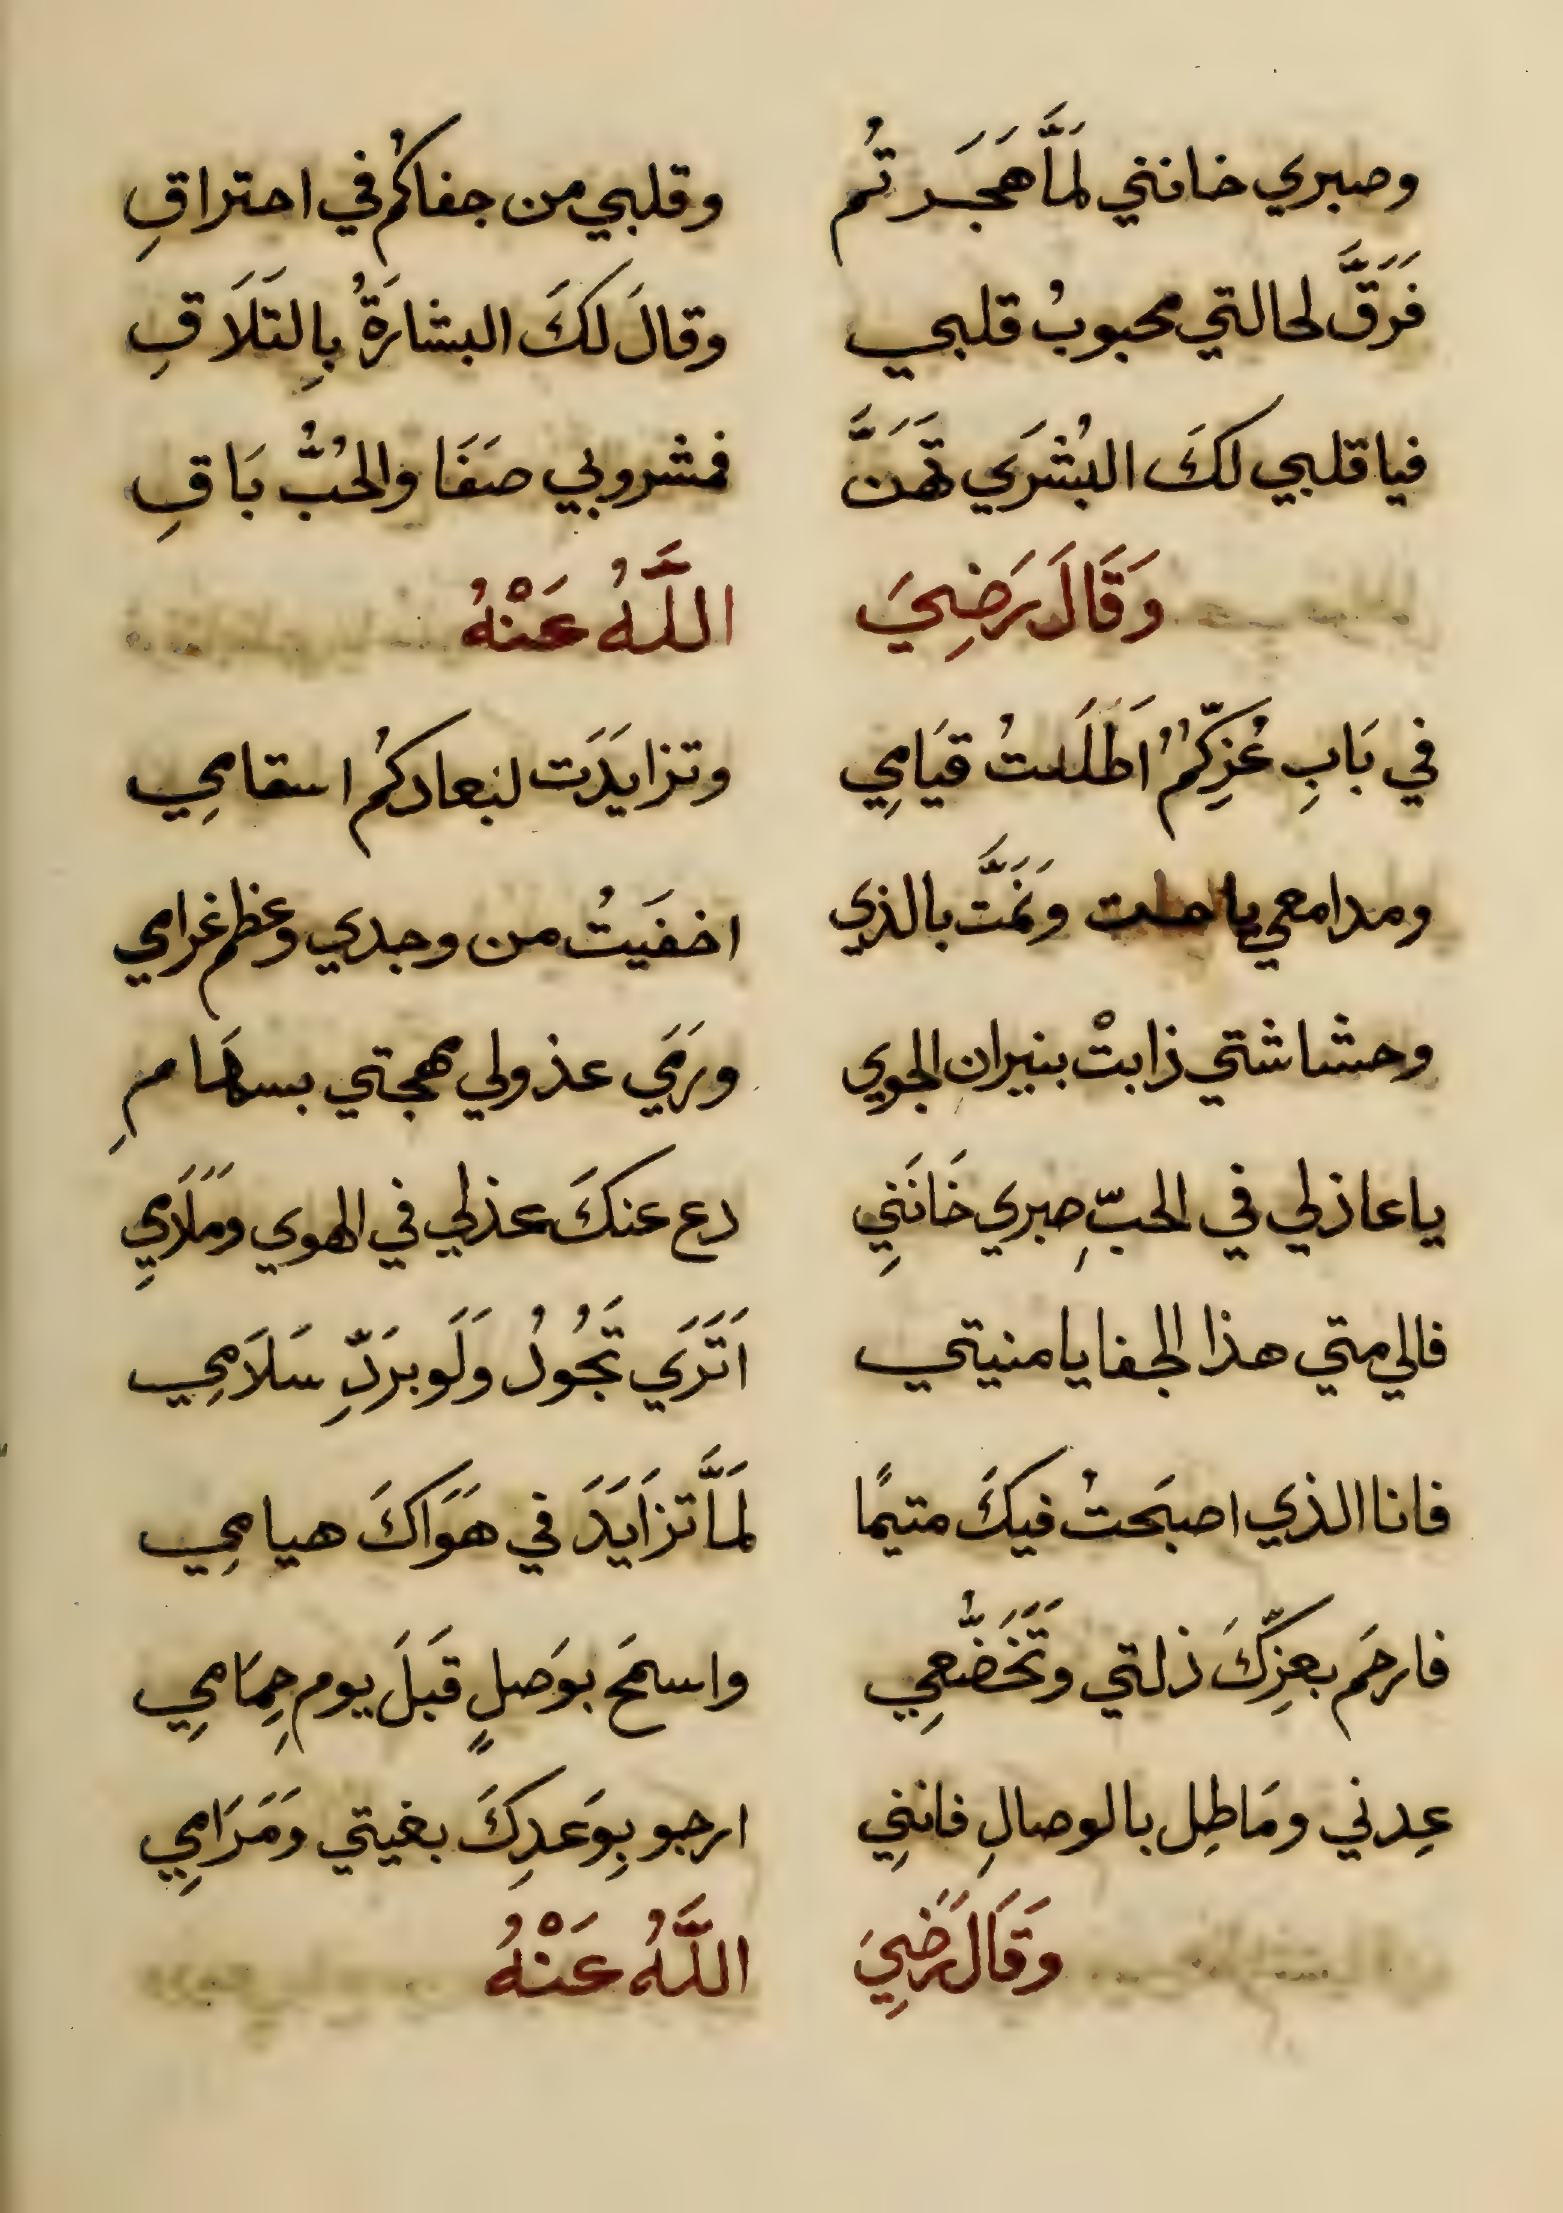 وصبري خانني لَمَّا هَجَرتُم وقلبي من جفاكُم في احتراقِ
فَرَقَّ لحالتي محبوبُ قلبي وقالَ لكَ البشارَةُ بِالتَلَاقِ
فيا قلبي لكَ البُشرَي تَهَنَّ فمشروبي صَفَا والحُبُّ بَاقِ
وَقَالَ رَضِيَ اللَّهُ عَنْهُ
في بَابِ عُزِّكُمُ اَطَلتُ قيَامِي وتزايَدَت لبعادكُم اسقامِي
ومدامعي باحت وَنَمَّت بالذي اخفَيتُ من وجدي وعظم غرامي
وحشاشتي ذابتْ بنيران الجوي ورَمَي عذولي مهجتي بسهَامِ
ياعاذلي في الحبِّ صبري خَانَنِي دع عنكَ عذلي في الهوي ومَلَامِي
فالي متي هذا الجفا يا منيتي اَتَرَي تَجُودُ وَلَو برَدِّ سَلَامِي
فانا الذي اصبَحتُ فيكَ متيمًا لَمَّا تزَايَدَ في هَوَاكَ هيامِي
فارحَم بعزِّكَ ذلتي وتَخَضُّعِي واسمَح بوَصلٍ قَبلَ يوم حِمَامِي
عِدني ومَاطِل بالوصالِ فانَنِي ارجو بِوَعدِكَ بغيتي وَمَرَامِي
وَقَالَ رَضِيَ اللَّهُ عَنْهُ